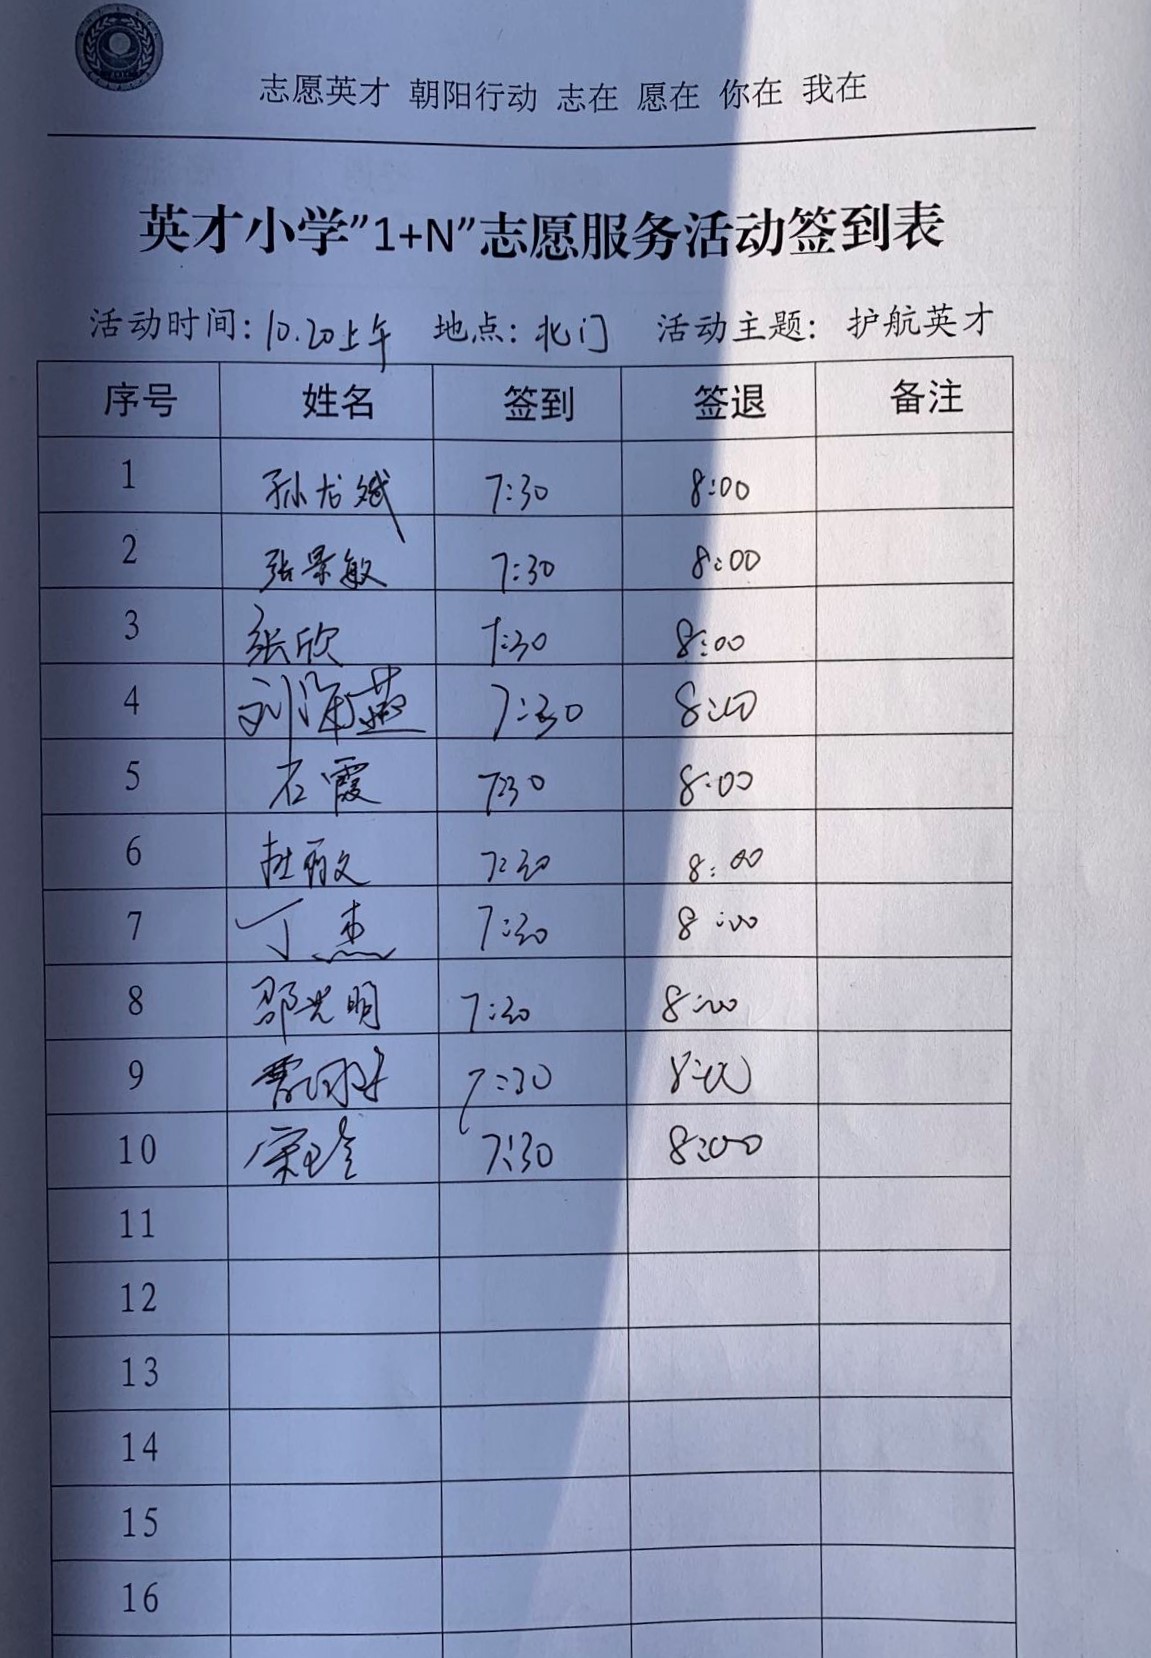 志愿英才 朝阳行动 志在 愿在 你在 我在
英才小学"1+N"志愿服务活动签到表
活动时间：10.20上午 地点：北门 活动主题：护航英才
序号 姓名 签到 签退 备注
1 孙龙斌 7:30 8:00
2 张景敏 7:30 8:00
3 张欣 7:30 8:00
4 刘海燕 7:30 8:00
5 石霞 7:30 8:00
6 杜丽文 7:30 8:00
7 丁杰 7:30 8:00
8 邵光明 7:30 8:00
9 7:30 8:00
10 7:30 8:00
11
12
13
14
15
16